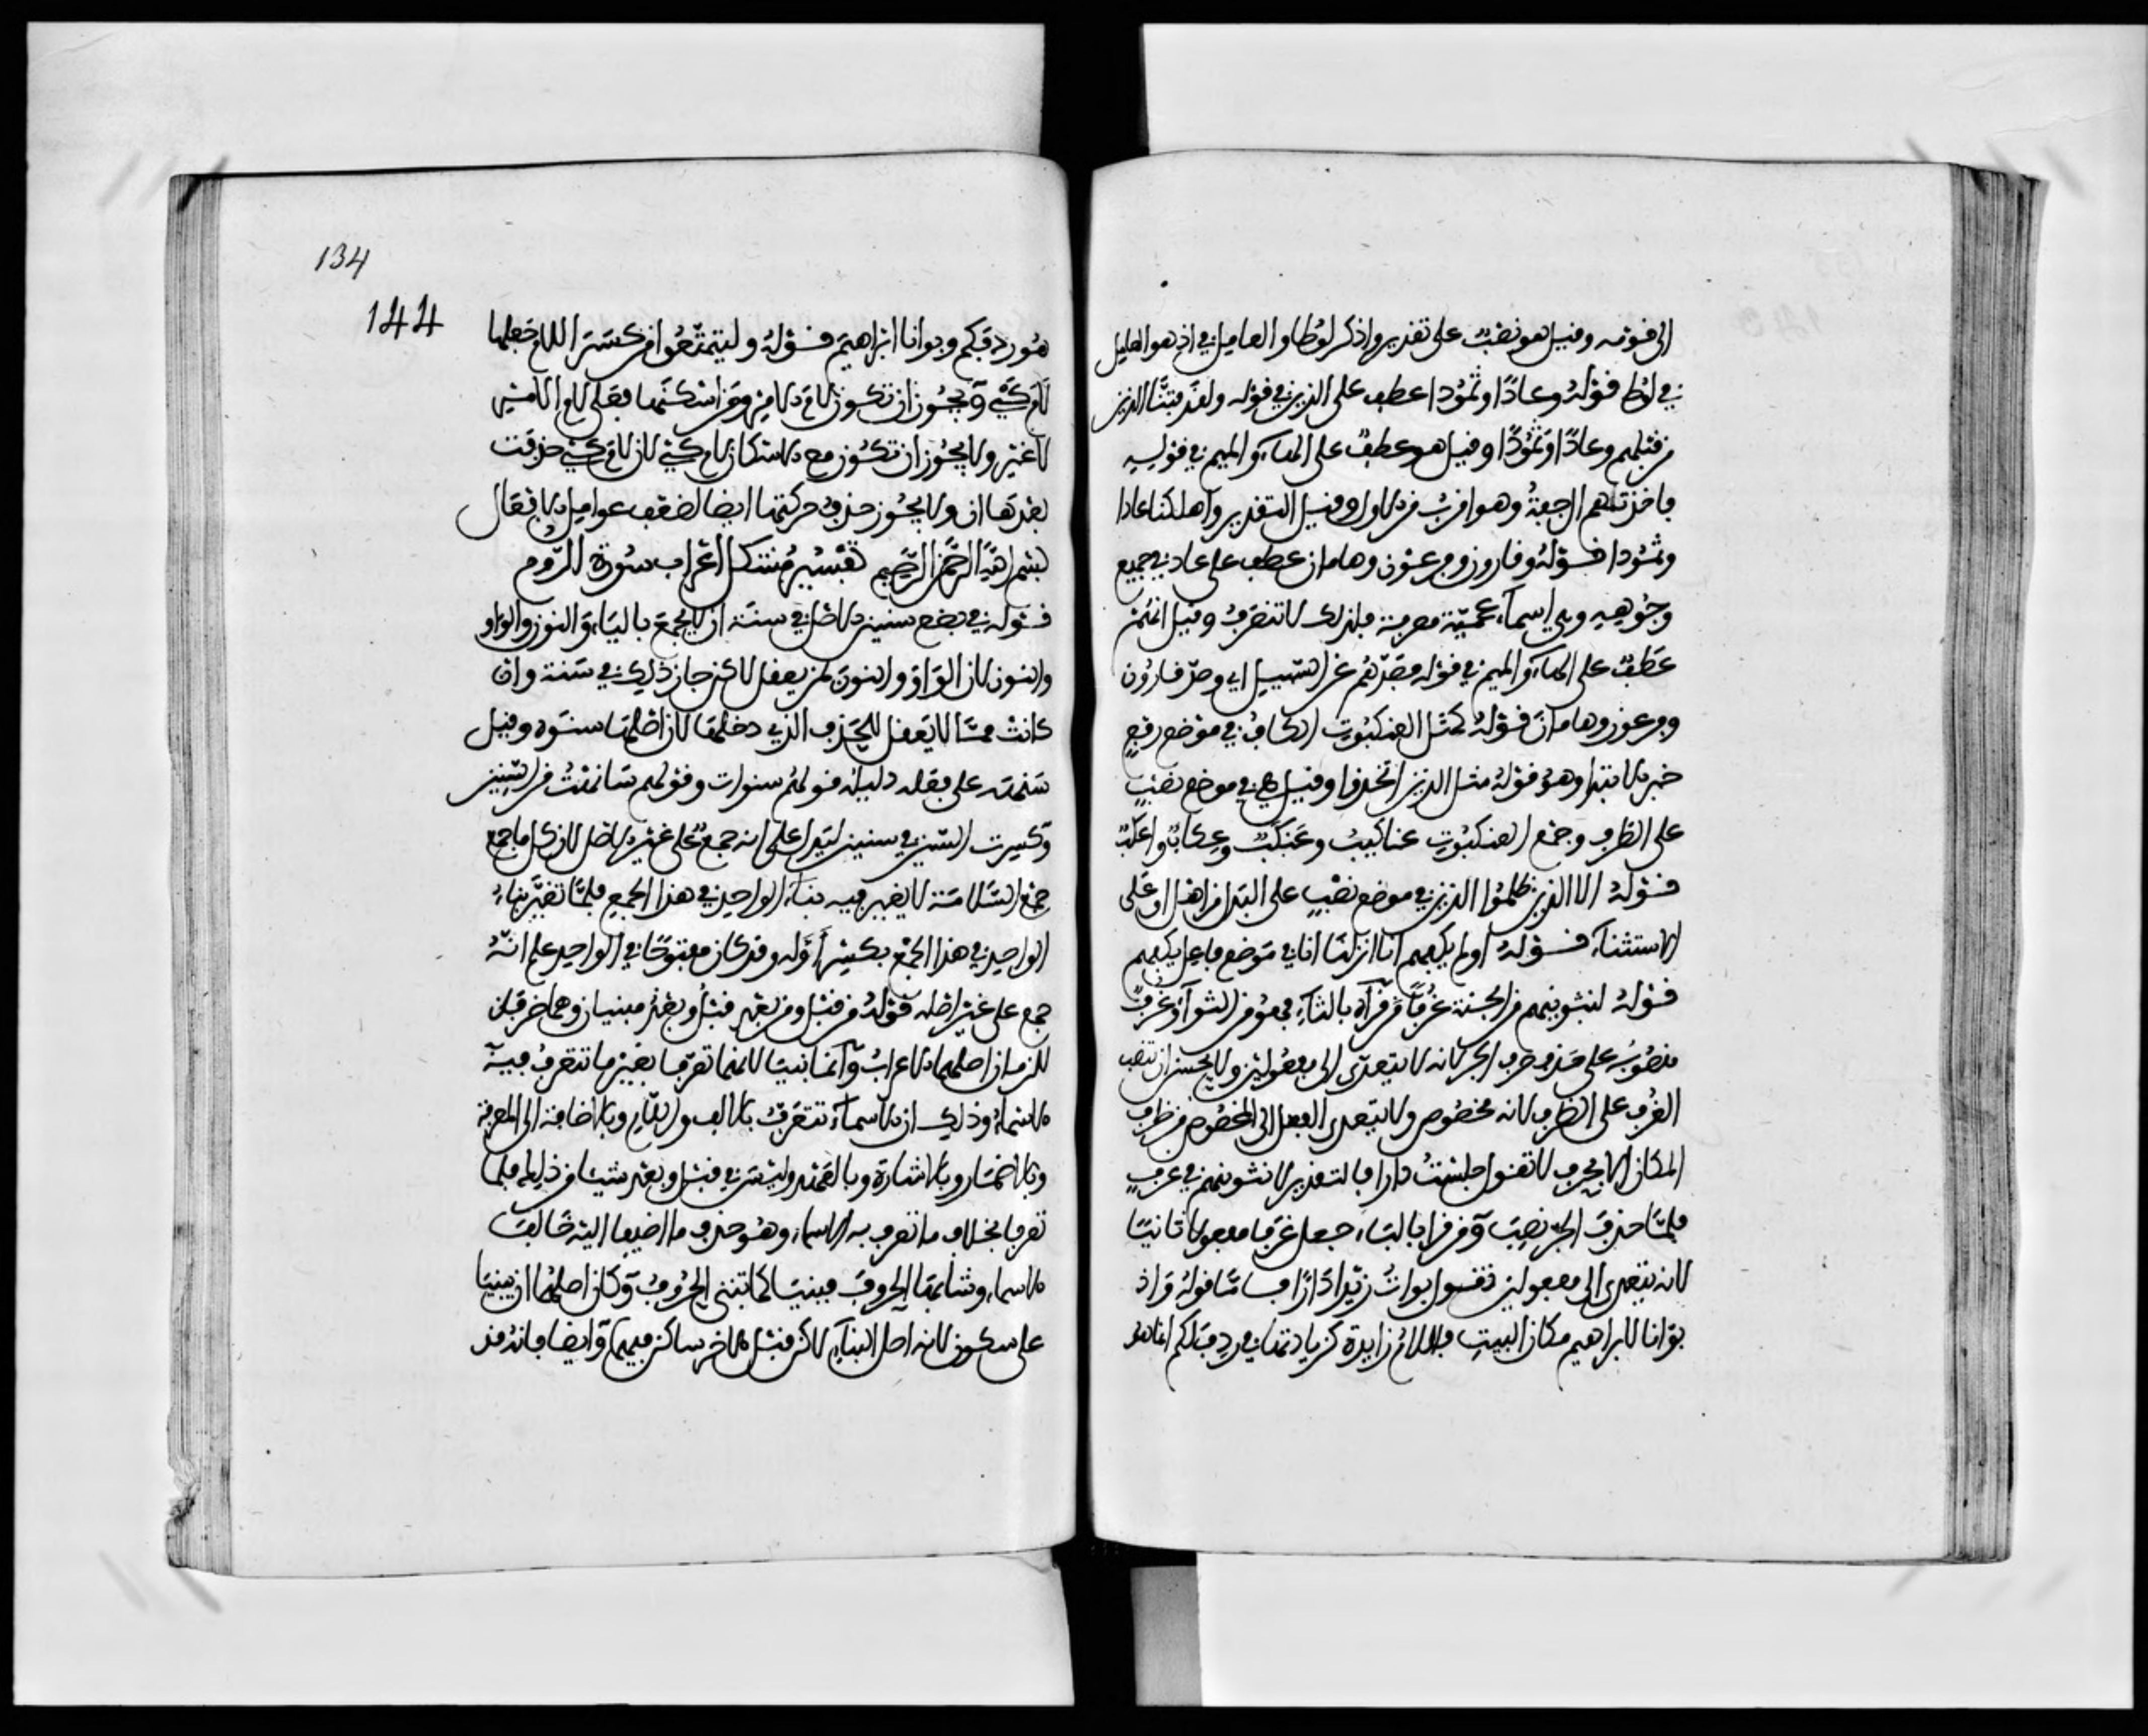 الى قومه وقيل هو نصب على تقدير واذكر لوطا والعامل في اذ هو العامل
في لوط قوله وعادًا وثمودا عطف على الذين في قوله ولقد فتنا الذين
من قبلهم وعادًا وثمودًا وقيل هو عطف على الهاء والميم في قوله
فاخذتهم الرجفة وهو اقرب من الاول وقيل التقدير واهلكنا عادا
وثمودا قوله وقارون وفرعون وهامان عطف على عاد في جميع
وجوهه وهي اسماء عجمية معرفة فلذلك لا تنصرف وقيل انهم
عطف على الهاء والميم في قوله فصدهم عن السبيل اي وصد قارون
وفرعون وهامان قوله كمثل العنكبوت الكاف في موضع رفع
خبر الابتداء وهو قوله مثل الذين اتخذوا وقيل هي في موضع نصب
على الظرف وجمع العنكبوت عناكيب وعنكب وعكاب واعكب
قوله الا الذين ظلموا الذين في موضع نصب على البدل من اهل او على
الاستثناء قوله اولم يكفهم انا انزلنا انا في موضع فاعل يكفهم
قوله لنثوينهم من الجنة غرفا من قرأه بالثاء فهو من الثواء وغرف
منصوب على حذف حرف الجر لانه لا يتعدى الى مفعولين ولا يحسن ان تنصب
الغرف على الظرف لانه مخصوص ولا يتعدى الفعل الى المخصوص من ظرف
المكان الا بحرف لا تقول جلست دارا فالتقدير لنثوينهم في غرف
فلما حذف الجر نصب ومن قرأ بالباء جعل غرفا مفعولا ثانيا
لانه يتعدى الى مفعولين تقول بوات زيدا دارًا فاما قوله واذ
بوانا لابراهيم مكان البيت فاللام زايدة كزيادتها في ردف لكم انما هو
134
144
هو ردفكم وبوانا ابراهيم قوله وليتمتعوا من كسر اللام جعلها
لام كي ويجوز ان تكون لام الامر ومن اسكنها فهي لام الامر
لا غير ولا يجوز ان تكون مع الاسكان لام كي لان لام كي حذفت
بعدها ان ولا يجوز حذف حركتها ايضا لضعف عوامل الافعال
بسم الله الرحمن الرحيم تفسير مشكل اعراب سورة الروم
قوله في بضع سنين الاصل في سنة ان لا يجمع بالياء والنون والواو
والنون لان الواو والنون لمن يعقل لاكن جاز ذلك في سنة وان
كانت مما لا يعقل للحذف الذي دخلها لان اصلها سنوة وقيل
سنهة على فعلة دليله قولهم سنوات وقولهم سانهت من السنين
وكسرت السين في سنين لتدل على انه جمع على غير الاصل لان كل ما جمع
جمع السلامة لا يغير فيه بناء الواحد في هذا الجمع فلما تغير بناء
الواحد في هذا الجمع بكسر اوله وقد كان مفتوحا في الواحد علم انه
جمع على غير اصله قوله من قبل ومن بعد قبل وبعد مبنيان وهما ظرفان
للزمان اصلهما الاعراب وانما بنيا لانهما تعرفا بغير ما تتعرف فيه
الاسماء وذلك ان الاسماء تتعرف بالالف واللام وبالاضافة الى المعرفة
وبالاضمار وبالاشارة وبالعهد وليس في قبل وبعد شيئا من ذلك فلما
تعرفا بخلاف ما تعرف به الاسماء وهو حذف ما اضيفا اليه خالفا
الاسماء وشابها الحروف فبنيا كما تبنى الحروف وكان اصلهما ان يبنيا
على سكون لانه اصل البناء لاكن قبل الاخر ساكن فيهما وايضا فانه قد